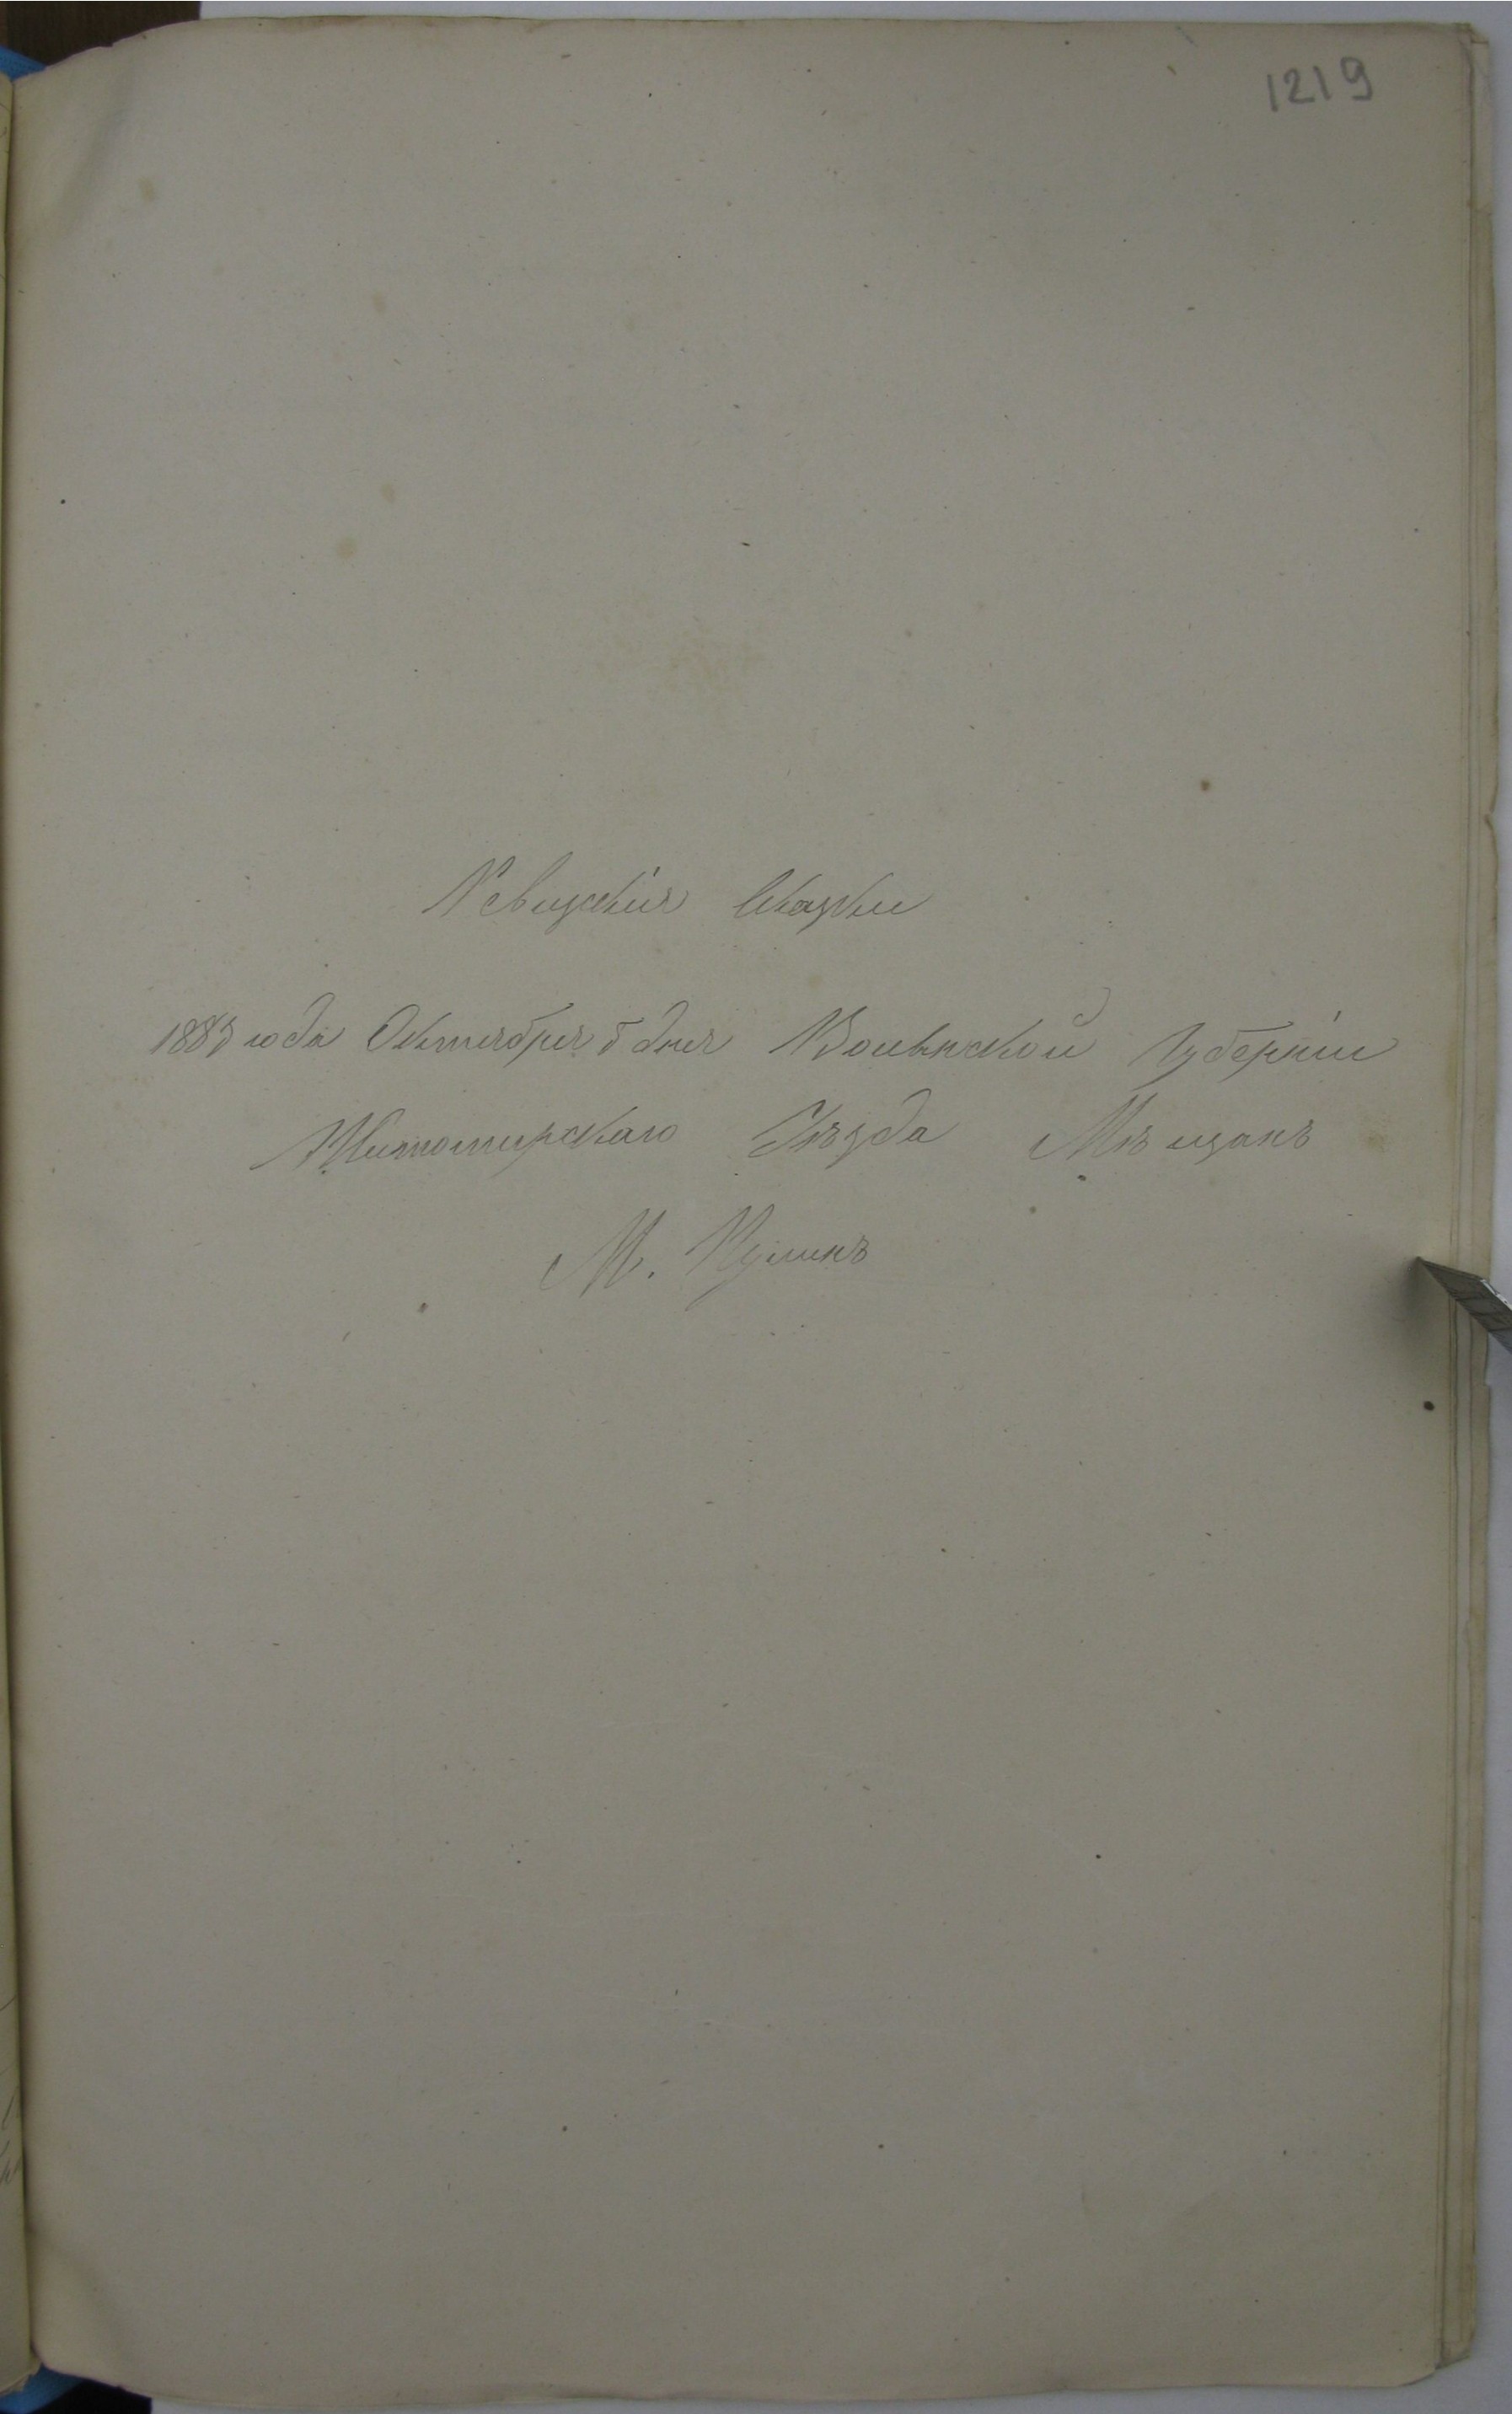 1219
Ревизскія Сказки
1883 года Октября 5 дня Волынской Губерніи
Житомирскаго Уѣзда Мѣщанъ
М. Кулинъ